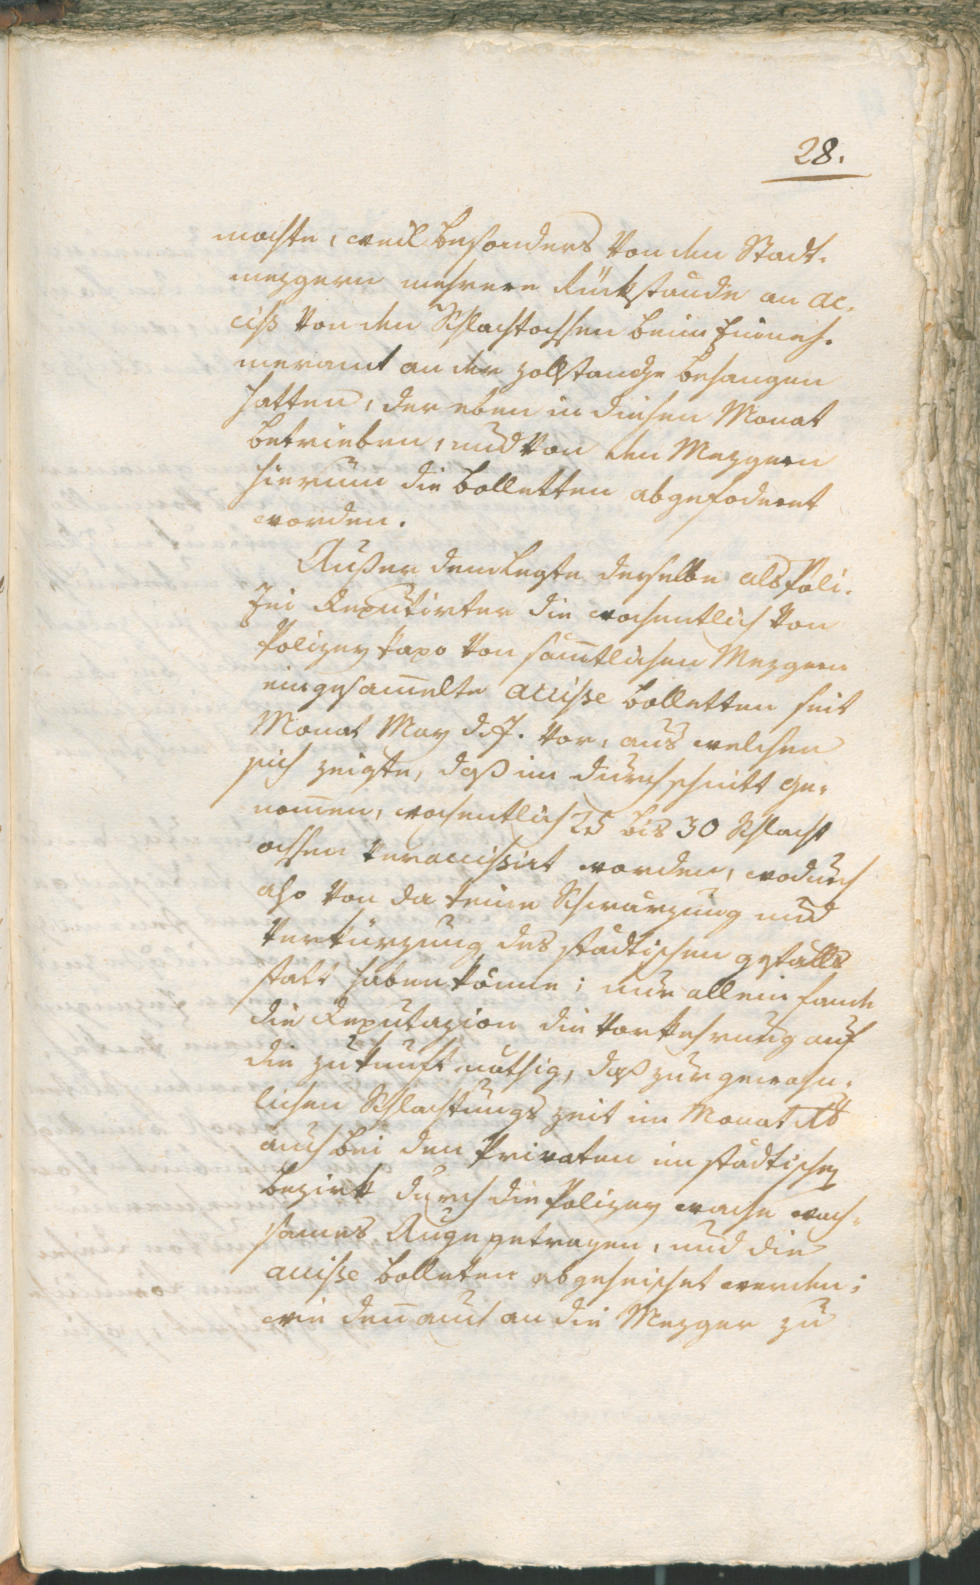 28.
machte, weil besonders von den Stadt-
mezgern mehrere Rükstände an Ac-
ciß von den Schlachtochsen beim Einneh-
meramt an der Zollstange behangen
hatten, der eben in diesen Monat
betrieben, und von den Mezgern
hierum die Bolletten abgefoderet
worden.
Außer dem legte derselbe als Poli-
zei Deputirter die wochentlich von
Polizey Capo von sam̅tlichen Mezgern
eingesam̅elte Accisse Bolletten seit
Monat May d. J. vor, aus welchen
sich zeigte, daß im durchschnitt ge-
nom̅en, wochentlich 25 bis 30 Schlacht
ochsen veraccisirt worden, wodurch
also von da keine Schwärzung und
Verkürzung des städtischen gefälls
statt haben könne; nur allein fande
die Deputazion die Vorkehrung auf
die Zukunft nöthig, daß zur gewohn-
lichen Schlachtungs zeit im Monat
auch bei den Privaten im städtischen
bezirk durch die Polizey wache wach-
sames Auge getragen, und die
Accisse Bolleten abgeheischet werden;
wie den̅ auch an die Mezger zu